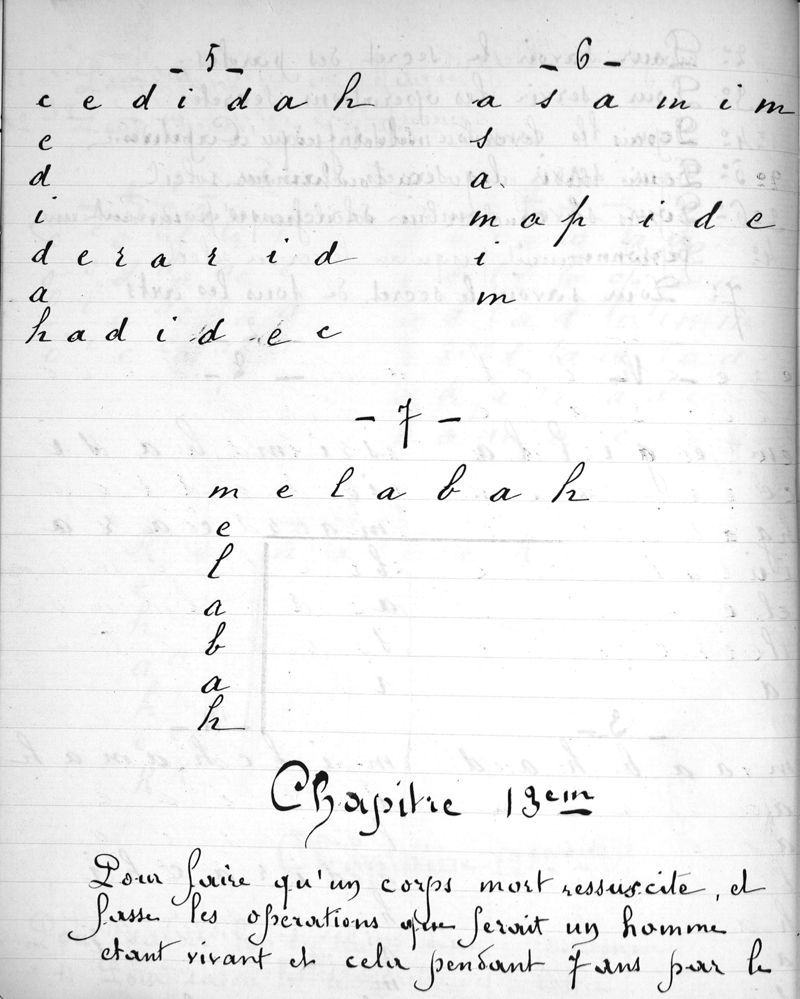 - 5 -
c e d i d a h
e
d
i
d e r a r i d
a
h a d i d e c
- 6 -
a s a m i m
s
a
m a p i d e
i
m
- 7 -
m e l a b a h
e
l
a
b
a
h
Chapitre 13em
Pour faire qu'un corps mort ressuscite, et
fasse les operations que ferait un homme
etant vivant et cela pendant 7 ans par le